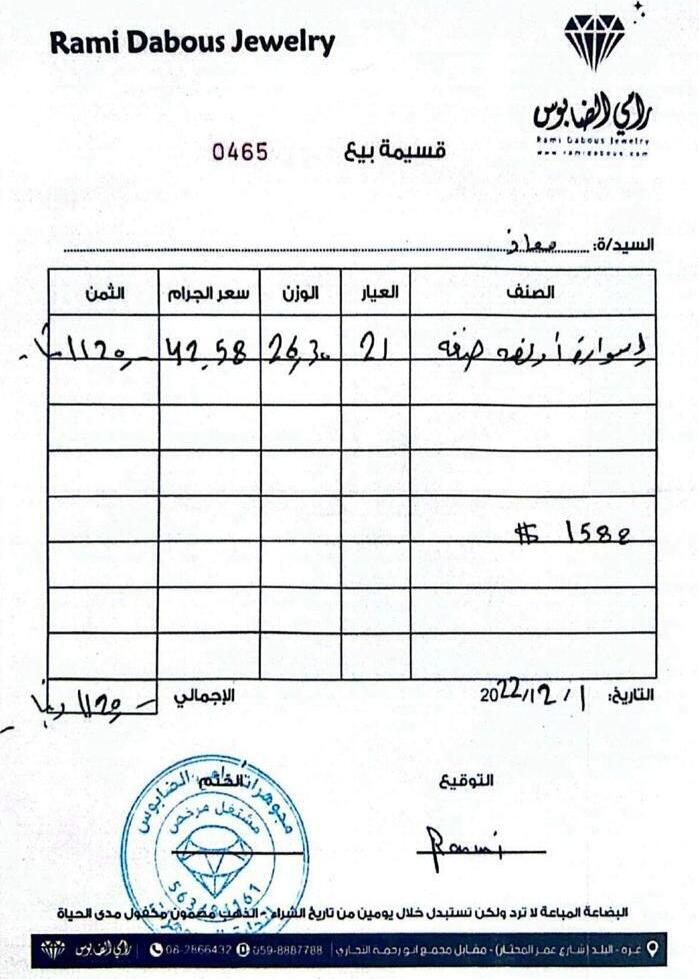 Rami Dabous Jewelry
رامي الضابوس
Rami Dabous Jewelry
www.ramidabous.com
قسيمة بيع 0465
السيد/ة: معاذ
الصنف العيار الوزن سعر الجرام الثمن
إسوارة 21 26,30 42,58 1120
$ 1588
التاريخ: 2022/12/1 الإجمالي 1120
التوقيع الختم
Rami
مجوهرات رامي الضابوس
مشتغل مرخص
البضاعة المباعة لا ترد ولكن تستبدل خلال يومين من تاريخ الشراء - الذهب مضمون مكفول مدى الحياة
غزة - البلد (شارع عمر المختار) - مقابل مجمع ابو رحمة التجاري | 059-8887788 08-2866432 رامي الضابوس